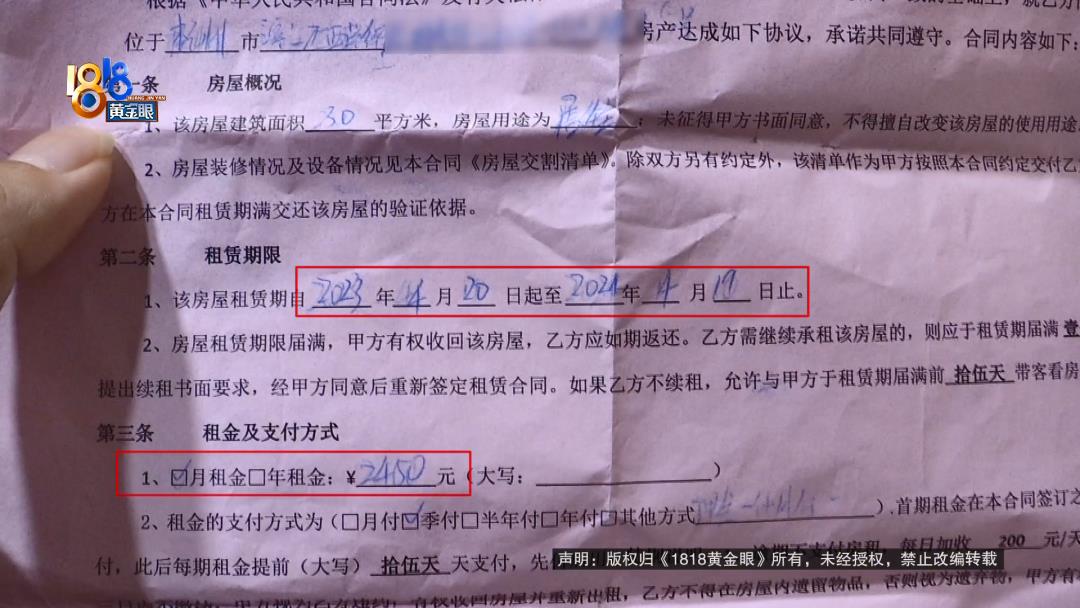 根据《中华人民共和国合同法》及有关法
位于 杭州 市 滨
房产达成如下协议，承诺共同遵守。合同内容如下：
1818
HUANG JIN YAN
黄金眼
第一条 房屋概况
1、该房屋建筑面积 30 平方米，房屋用途为 居住 ；未征得甲方书面同意，不得擅自改变该房屋的使用用途
2、房屋装修情况及设备情况见本合同《房屋交割清单》。除双方另有约定外，该清单作为甲方按照本合同约定交付乙
方在本合同租赁期满交还该房屋的验证依据。
第二条 租赁期限
1、该房屋租赁期自 2023 年 4 月 20 日起至 2024 年 4 月 19 日止。
2、房屋租赁期限届满，甲方有权收回该房屋，乙方应如期返还。乙方需继续承租该房屋的，则应于租赁期届满 壹
提出续租书面要求，经甲方同意后重新签定租赁合同。如果乙方不续租，允许与甲方于租赁期届满前 拾伍天 带客看房
第三条 租金及支付方式
1、☑月租金□年租金：¥ 2450 元（大写：）
2、租金的支付方式为（□月付☑季付□半年付□年付□其他方式 ），首期租金在本合同签订之
付，此后每期租金提前（大写） 拾伍天 天支付，先付
逾期不支付房租，每日加收 200 元/天
声明：版权归《1818黄金眼》所有，未经授权，禁止改编转载
有权收回房屋并重新出租，乙方不得在房屋内遗留物品，否则视为遗弃物，甲方有